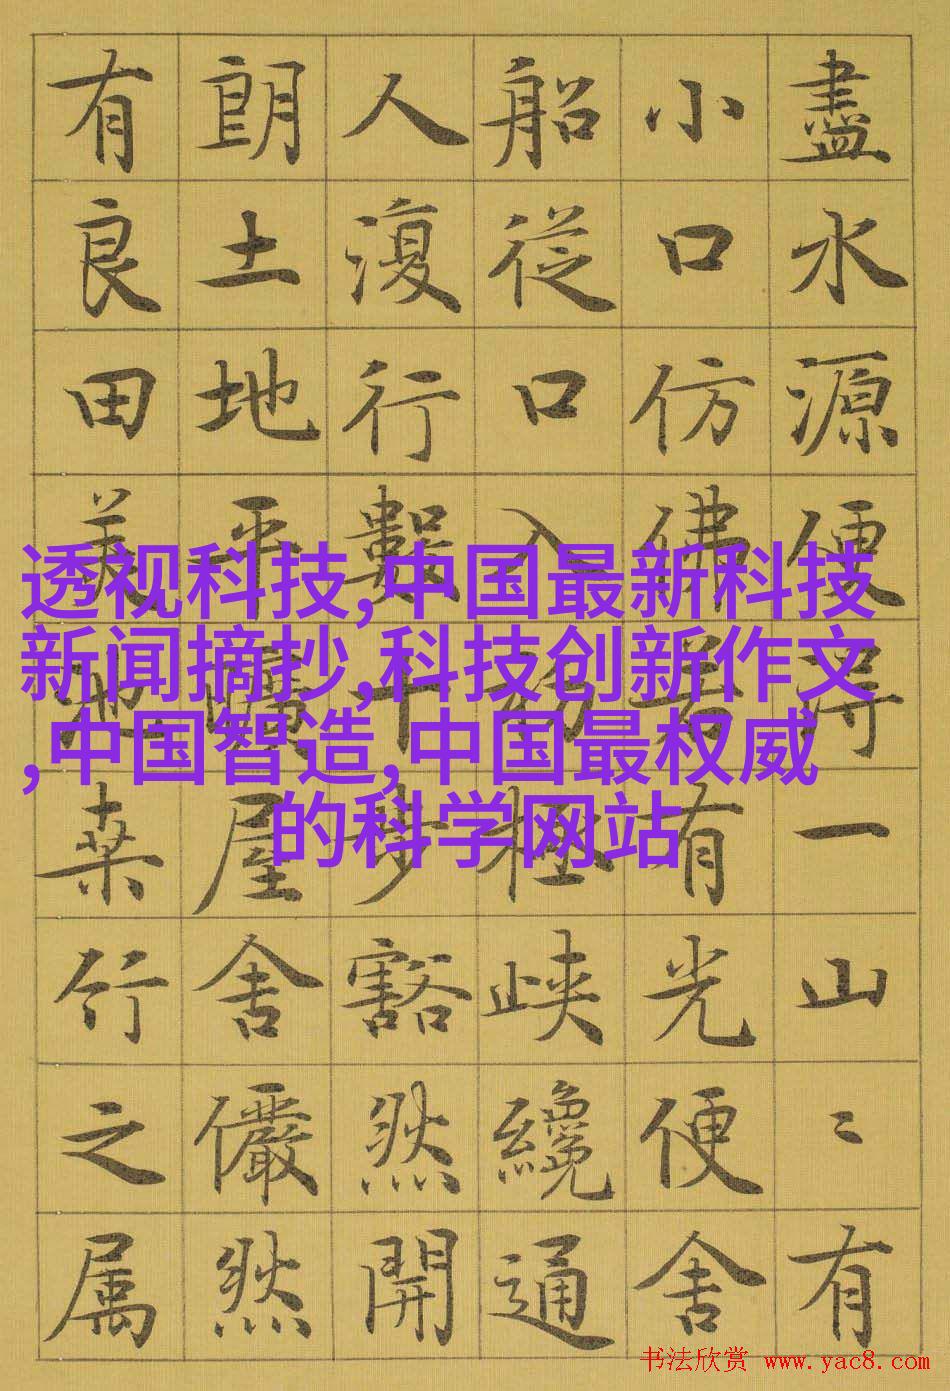 盡水源便得一山〻有
小口仿佛若有光便舍
船從口入初極峽纔通
人復行數十步豁然開
朗土地平曠屋舍儼然
有良田美池桑竹之属
透视科技,中国最新科技
新闻摘抄,科技创新作文
,中国智造,中国最权威
的科学网站
书法欣赏 www.yac8.com